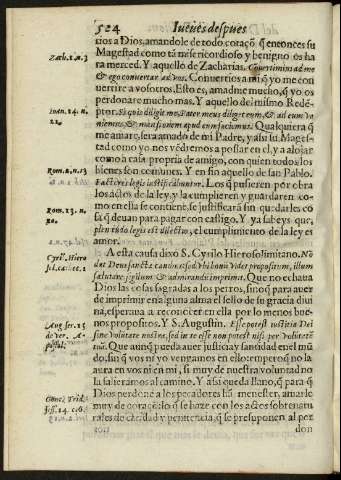 524 Iueues despues
rios a Dios, amandole de todo coraçõ q̃ entonces su
Magestad como tã misericordioso y benigno os ha
Zach. 1. n. 3
ra merced. Y aquello de Zacharias. Conuertimini ad me
& ego conuertar ad vos. Conuertios a mi, q̃ yo me con
uertire a vosotros. Esto es, amadme mucho, q̃ yo os
perdonare mucho mas. Y aquello del mismo Redẽ
Ioan. 14. n.
ptor. Si quis diligit me, Pater meus diliget eum, & ad eum ve
niemus, & mansionem apud eum faciemus. Qualquiera q̃
me amare, sera amado de mi Padre, y alsi su Mages-
tad como yo nos vẽdremos a possar en el, y a alojar
como a casa propria de amigo, con quien todos los
Rom. 2. n. 13
bienes son comunes. Y en fin aquello de san Pablo.
Factores legis iustificabuntur. Los q̃ pusieren por obra
los actos de la ley, y la cumplieren y guardaren co-
Rom. 13. n.
mo en ella se contiene, se justificarã sin quedarles co
sa q̃ deuan para pagar con castigo. Y ya sabeys que,
plenitudo legis est dilectio, el cumplimento de la ley es
amor.
A esta causa dixo S. Cyrilo Hierosolimitano. No
dat Deus sancta canibus, sed vbi bonũ videt propositum, illum
salutare, sigillum & admirandũ imprimit. Que no echaua
Dios las cosas sagradas a los perros, sino q̃ para auer
de imprimir en alguna alma el sello de su gracia diui
na, esperaua a reconocer en ella por lo menos bue-
Aug. ser. 15
nos propositos. Y S. Augustin. Esse potest iustitia Dei
de ver. A-
sine voluntate tua, sed in te esse non potest nisi per Voluntatẽ
postol.
tuã. Que aunq̃ pueda auer justicia y santidad en el mũ
do, sin q̃ vos ni yo vengamos en ello: empero q̃ no la
aura en vos ni en mi, si muy de nuestra voluntad no
la salieramos al camino. Y assi queda llano, q̃ para q̃
Conci. Trid.
Dios perdone a los pecadores hã menester, amarle
muy de coraçõ: lo q̃ se haze con los actos sobrenatu
rales de caridad y penitencia, q̃ se presuponen al per
don